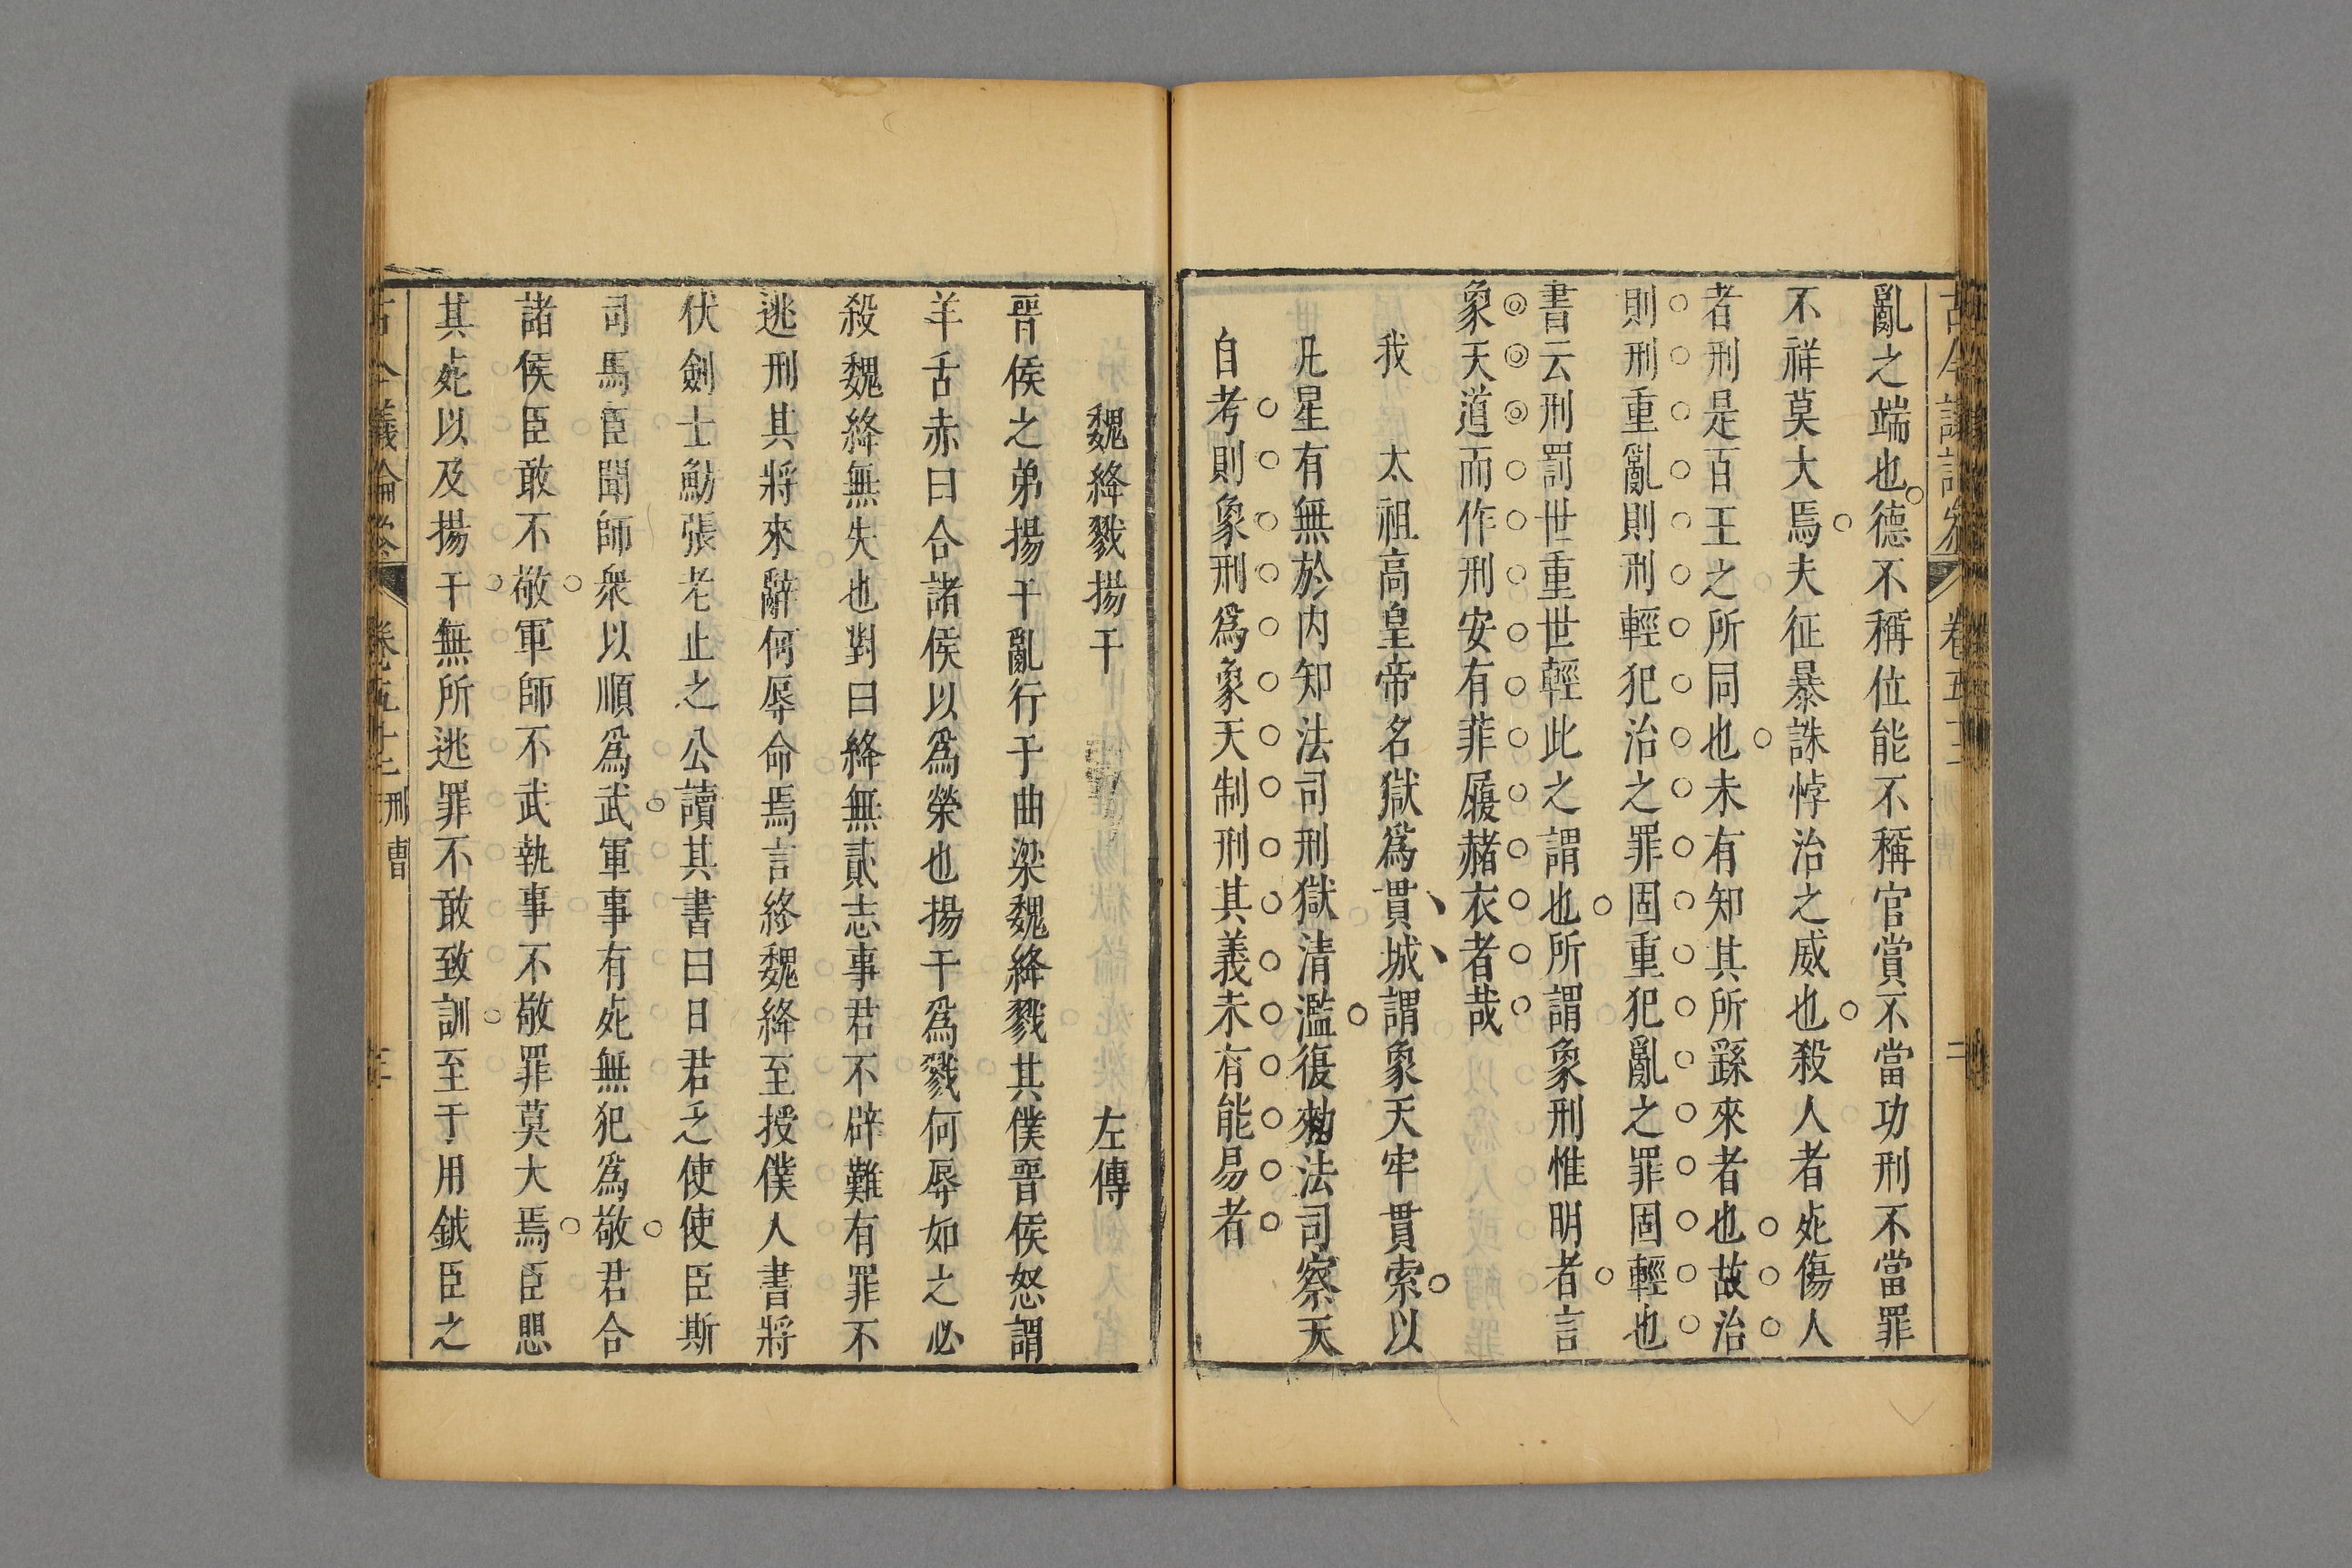 亂之端也德不稱位能不稱官賞不當功刑不當罪
不祥莫大焉夫征暴誅悖治之威也殺人者死傷人
者刑是百王之所同也未有知其所繇來者也故治
則刑重亂則刑輕犯治之罪固重犯亂之罪固輕也
書云刑罰世重世輕此之謂也所謂象刑惟明者言
象天道而作刑安有菲屨赭衣者哉
我　太祖高皇帝名獄爲貫城謂象天牢貫索以
凡星有無於内知法司刑獄清濫復勑法司察天
自考則象刑爲象天制刑其義未有能易者
魏絳戮揚干　左傳
晉侯之弟揚干亂行于曲梁魏絳戮其僕晉侯怒謂
羊舌赤曰合諸侯以爲榮也揚干爲戮何辱如之必
殺魏絳無失也對曰絳無貳志事君不辟難有罪不
逃刑其將來辭何辱命焉言終魏絳至授僕人書將
伏劍士魴張老止之公讀其書曰日君乏使使臣斯
司馬臣聞師衆以順爲武軍事有死無犯爲敬君合
諸侯臣敢不敬軍師不武執事不敬罪莫大焉臣懼
其死以及揚干無所逃罪不敢致訓至于用鉞臣之
卷五十三 刑曹